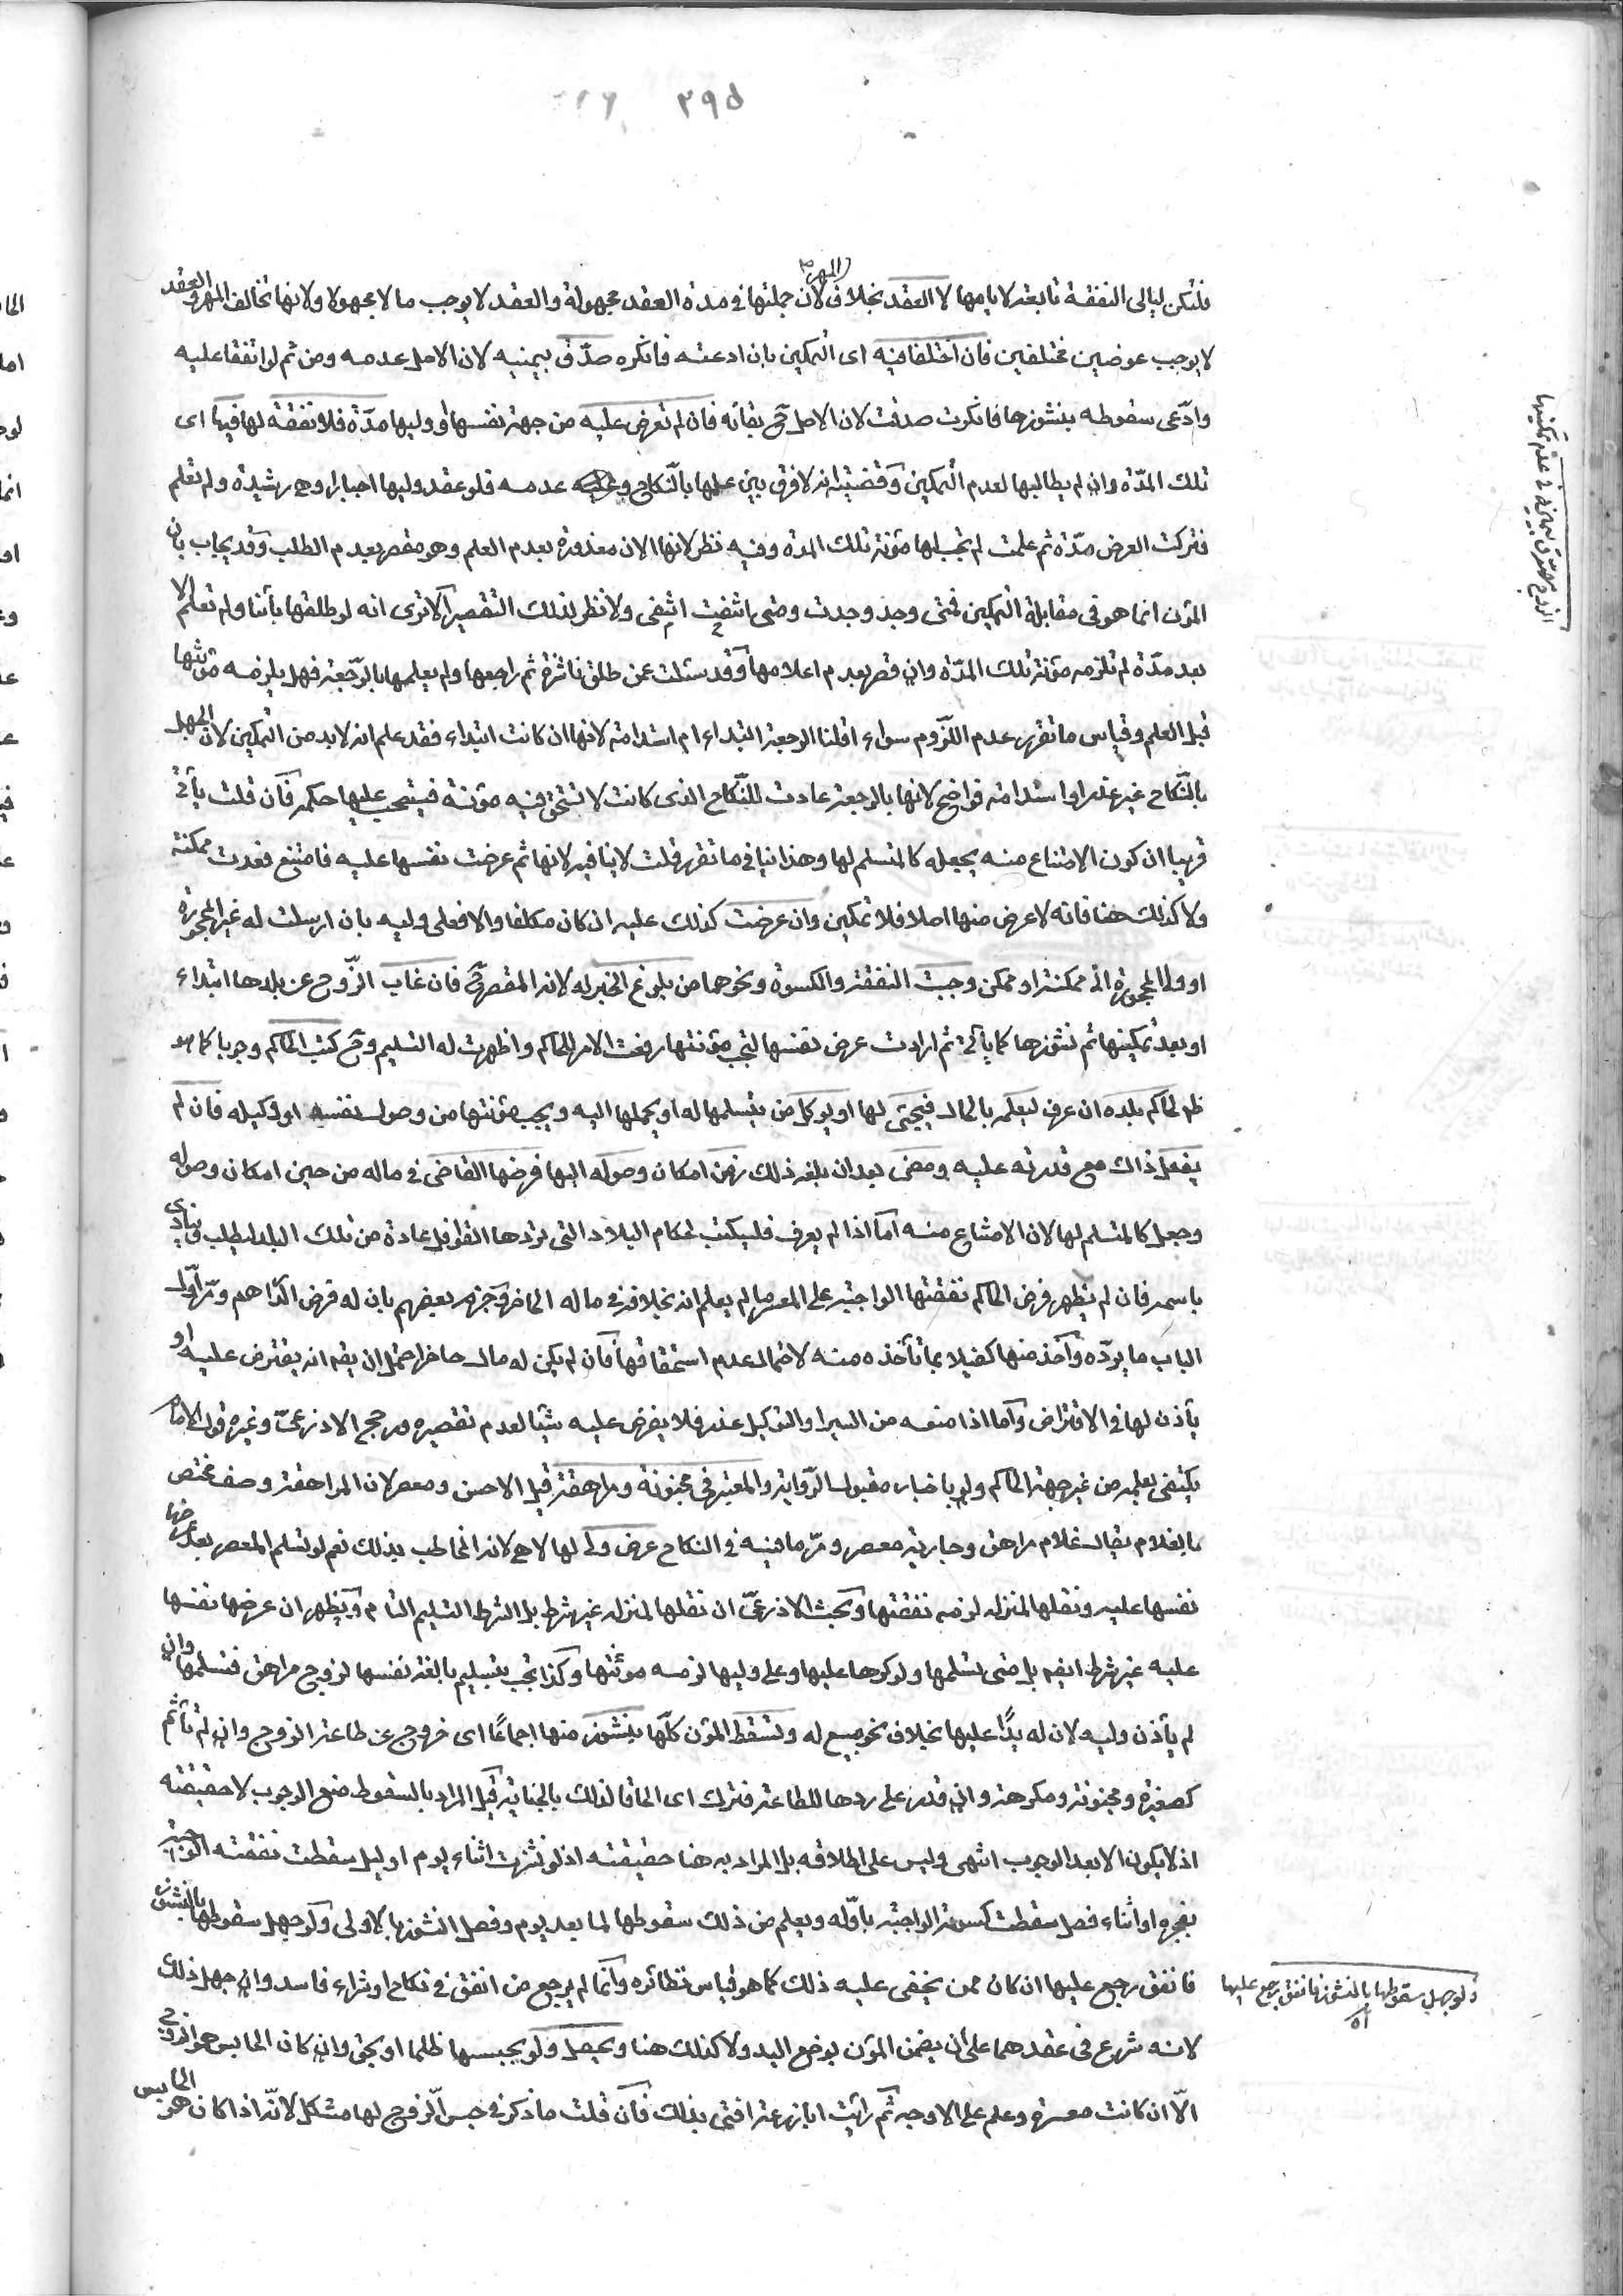 ٣٩٥
فلتكن ليالى النفقة تابعة لايامها لا العقد بخلاف المهر لان جملتها فى مدة العقد مجهولة والعقد لا يوجب مالا مجهولا ولانها تخالف المهر والعقد
لا يوجب عوضين مختلفين فان اختلفا فيه اى التمكين بان ادعته فانكره صدّق بيمنيه لان الاصل عدمه ومن ثم لو اتفقا عليه
وادّعى سقوطه بنشوزها فانكرت صدقت لان الاصل ح بقائه فان لم تعرض عليه من جهة نفسها او وليها مدّة فلا نفقة لها فيها اى
تلك المدّة وان لم يطالبها لعدم التمكين وقضيته انه لا فرق بين علمها بالنّكاح وعدمه فلو عقد وليها اجبارا وهى رشيدة ولم تعلم
فتركت العرض مدّة ثم علمت لم يجب لها مؤنة تلك المدة وفيه نظر لانها الان معذورة بعدم العلم وهو مقصر بعدم الطلب وقد يجاب بان
المؤن انما هو فى مقابلة التمكين فمتى وجد وجدت ومتى انتفت انتفى ولا نظر لذلك التقصير الا ترى انه لو طلقها بائنا ولم تعلم الا
بعد مدّة لم تلزمه مؤنة تلك المدّة وان قصر بعدم اعلامها وقد سئلت عمن طلق ناشزة ثم راجعها ولم يعلمها بالرّجعة فهل يلزمه مؤنتها
قبل العلم وقياس ما تقرر عدم اللّزوم سواء اقلنا الرجعة ابتداء ام استدامة لانها ان كانت ابتداء فقد علم انه لابد من التمكين لان الجهل
بالنّكاح غير عذر او استدامة فواضح لانها بالرجعة عادت للنّكاح الذى كانت لا تستحق فيه مؤنة فينسحب عليها حكمه فان قلت يأتى
قريبا ان كون الامتناع منه يجعله كالمتسلم لها وهذا ينافى ما تقرر قلت لا ينافيه لانها ثم عرضت نفسها عليه فامتنع فعدت ممكنة
ولا كذلك هنا فانه لا عرض منها اصلا فلا تمكين وان عرضت كذلك عليه ان كان مكلفا والا فعلى وليه بان ارسلت له غير المحجورة
او ولى المحجورة انى ممكنة او ممكن وجبت النفقة والكسوة ونحوهما من بلوغ الخبر له لانه المقصر ح فان غاب الزّوج عن بلدها ابتداء
او بعد تمكينها ثم نشوزها كما يأتى ثم ارادت عرض نفسها لتجب مؤنتها رفعت الامر للحاكم واظهرت له التسليم وح كتب الحاكم وجوبا كما هو
ظ لحاكم بلده ان عرف ليعلمه بالحال فيجئ لها او يوكل من يتسلمها له او يحملها اليه ويجب مؤنتها من وصول نفسه او وكيله فان لم
يفعل ذاك مع قدرته عليه ومضى بعد ان بلغه ذلك زمن امكان وصوله اليها فرضها القاضى فى ماله من حين امكان وصوله
وجعل كالمتسلم لها لان الامتناع منه اما اذا لم يعرف فليكتب لحكام البلاد التى تردها القوافل عادة من تلك البلد ليطلب وينادى
باسمه فان لم يظهر فرض الحاكم نفقتها الواجبة على المعسر ما لم يعلم انه بخلافه فى ماله الحاضر وجزم بعضهم بان له فرض الدّراهم ومرّ اوّل
الباب ما يردّه واخذ منها كفيلا بما تأخذه منه لاحتمال عدم استحقاقها فان لم يكن له مال حاضر احتمل ان يقم انه يقترض عليه او
يأذن لها فى الاقتراض واما اذا منعه من السير او التوكيل عذر فلا يفرض عليه شيئا لعدم تقصيره ورجح الاذرعىّ وغيره قول الامام
يكتفى بعلمه من غير جهة الحاكم ولو باخبار مقبول الرّواية والمعتبر فى مجنونة ومراهقة قيل الاحسن ومعصر لان المراهقة وصف مختص
بالغلام يقال غلام مراهق وجارية معصر ومرّ ما فيه فى النكاح عرض ولى لها لا هى لانه المخاطب بذلك نعم لو تسلم المعصر بعد عرضها
نفسها عليه ونقلها لمنزله لزمه نفقتها وبحث الاذرعىّ ان نقلها لمنزله غير شرط بل الشرط التسليم التام ويظهر ان عرضها نفسها
عليه غير شرط ايضه بل متى تسلمها ولو كرها عليها وعلى وليها لزمه مؤنتها وكذا تجب بتسليم بالغة نفسها لزوج مراهق فتسلمها وان
لم يأذن وليه لان له يدًا عليها بخلاف نحو مبيع له وتسقط المؤن كلّها بنشوز منها اجماعًا اى خروج عن طاعة الزوج وان لم تأثم
كصغيرة ومجنونة ومكرهة وان قدر على ردها للطاعة فترك اى الحاقا لذلك بالجناية قيل المراد بالسقوط منع الوجوب لا حقيقته
اذ لا يكون الا بعد الوجوب انتهى وليس على اطلاقه بل المراد به هنا حقيقته اذ لو نشزت اثناء يوم او ليل سقطت نفقته الواجبة
بفجره او اثناء فصل سقطت كسوته الواجبة باوّله ويعلم من ذلك سقوطها لما بعد يوم وفصل النشوز بالاولى ولو جهل سقوطها بالنشوز
فانفق رجع عليها ان كان ممن يخفى عليه ذلك كما هو قياس نظائره وانما لم يرجع من انفق فى نكاح او شراء فاسد وان جهل ذلك
لانه شرع فى عقدهما على ان يضمن المؤن بوضع اليد ولا كذلك هنا ويحصل ولو بحبسها ظلما او بحق وان كان الحابس هو الزوج
الّا ان كانت معسرة وعلم على الاوجه ثم رأيت ابا زرعة افتى بذلك فان قلت ما ذكر فى حبس الزّوج لها مشكل لانّه اذا كان هو الحابس
الزوج مصدّق بيمينه فى عدم تمكينها
ولو جهل سقوطها بالنشوز فانفق رجع عليها
اه